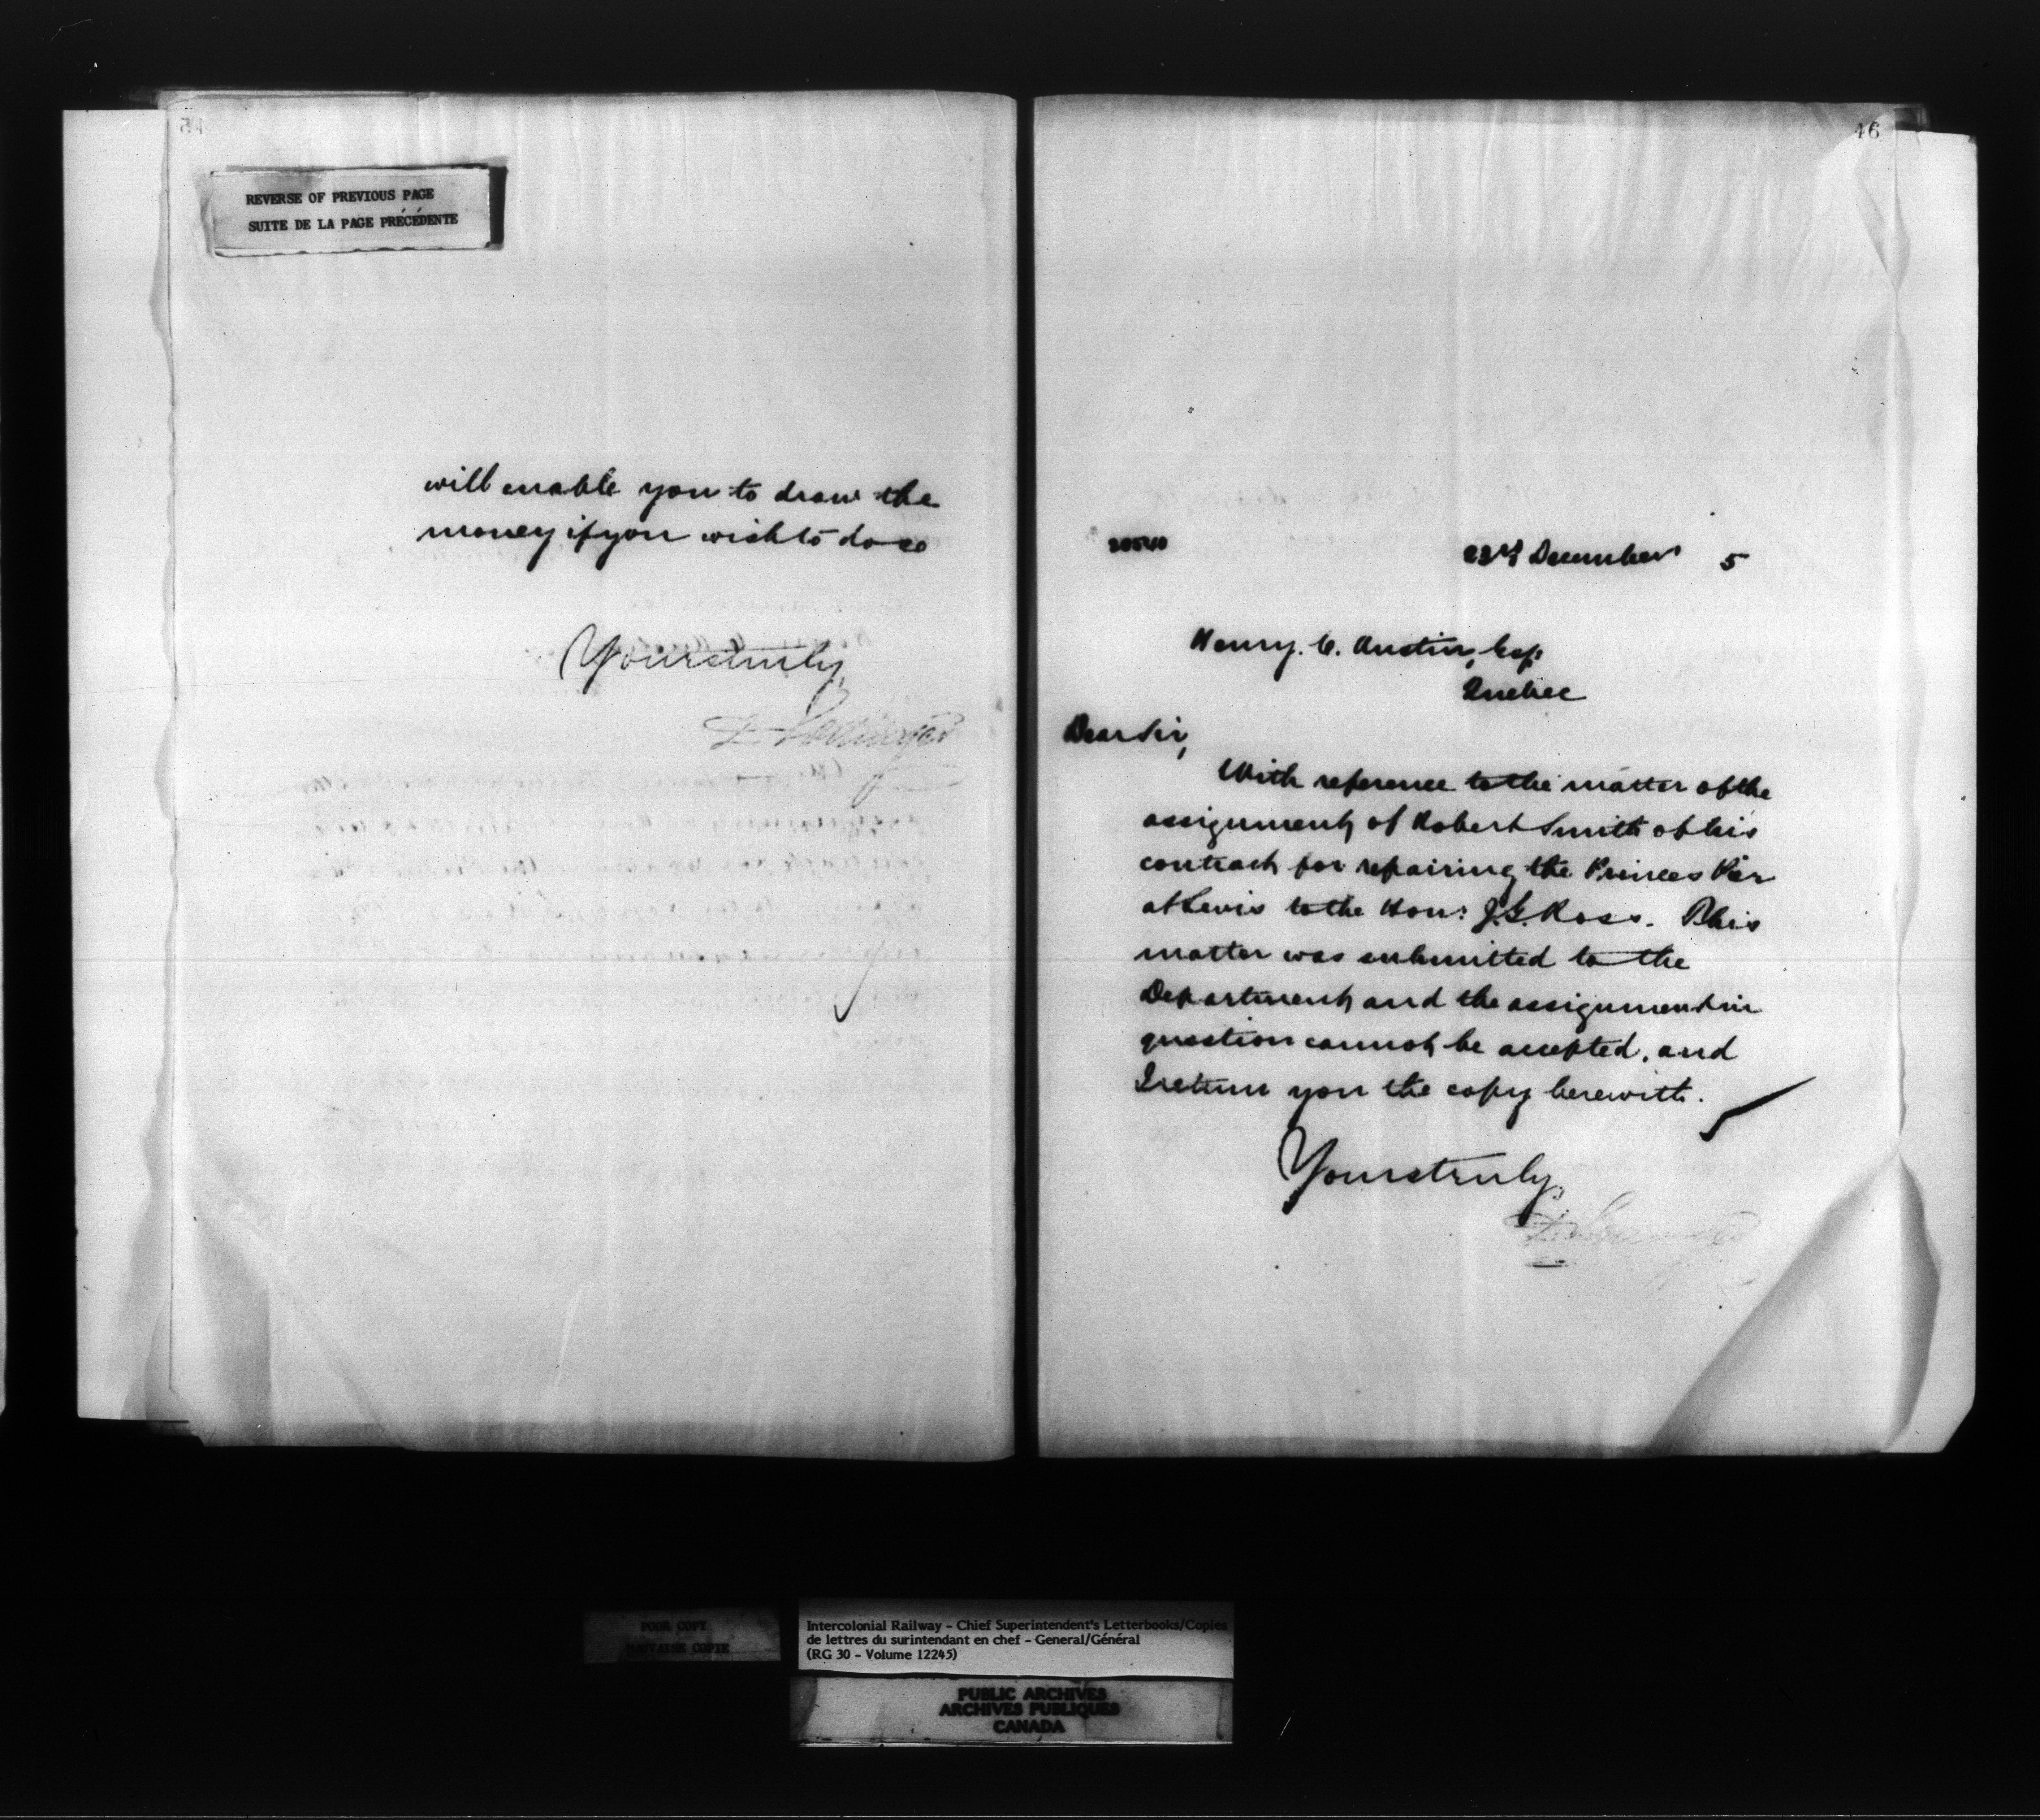 45
REVERSE OF PREVIOUS PAGE
SUITE DE LA PAGE PRÉCÉDENTE
will enable you to draw the
money if you wish to do so
Yours truly,
D Pottinger
46
23rd December 5
Henry. C. Austin, Esq:
Quebec
Dear Sir,
With reference to the matter of the
assignment of Robert Smith of his
contract for repairing the Princes Pier
at Levis to the Hon: J.G. Ross. This
matter was submitted to the
Department and the assignment in
question cannot be accepted, and
I return you the copy herewith.
Yours truly,
D Pottinger
POOR COPY
MAUVAISE COPIE
Intercolonial Railway - Chief Superintendent's Letterbooks/Copies
de lettres du surintendant en chef - General/Général
(RG 30 - Volume 12245)
PUBLIC ARCHIVES
ARCHIVES PUBLIQUES
CANADA